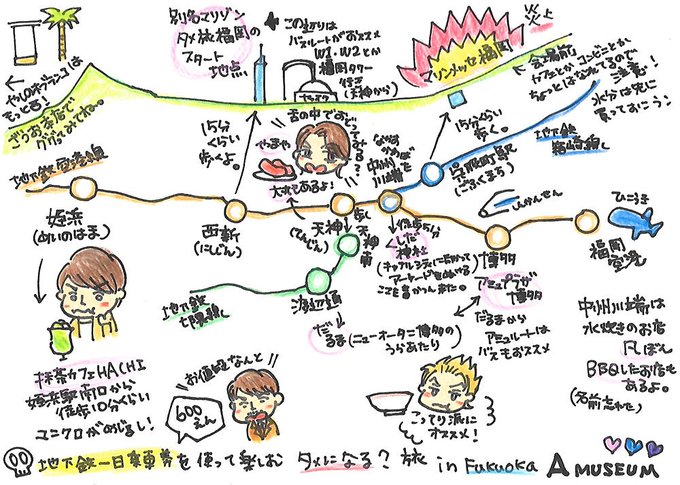 別名マリゾン
タメ旅福岡の
スタート
地点
この辺りは
バスルートがおススメ
W1・W2とか
福岡タワー
行き
(天神から)
炎上
マリンメッセ福岡
会場前
カフェとかコンビニとか
ちょっとはなれてるので
注意!
水分は先に
買っておこう!
やしの木ブランコは
もっと西!
ざうお本店で
ググってみてね。
15分
くらい
歩くよ。
舌の中でおどってみる?
やまや
大名もあるよ!
なかす
かわばた
中洲
川端
15分くらい
歩く。
呉服町駅
(ごふくまち)
地下鉄
箱崎線
地下鉄空港線
姪浜
(めいのはま)
西新
(にしじん)
天神
(てんじん)
歩く
天神
南
徒歩5分
くしだ
神社
しんかんせん
博多
ひこうき
福岡
空港
地下鉄
七隈線
渡辺通
だるま
(ニューオータニ博多の
うらあたり)
アミュプラザ
博多
だるまから
アミュルートは
バスもおススメ
中洲川端は
水炊きのお店
凡ぼん
BBQしたお店も
あるよ。
(名前忘れた)
抹茶カフェHACHI
姪浜駅南口から
徒歩10分くらい
ユニクロがめじるし!
お値段なんと
600
えん
こってり派に
オススメ!
地下鉄一日乗車券を使って楽しむ タメになる?旅 in Fukuoka A MUSEUM